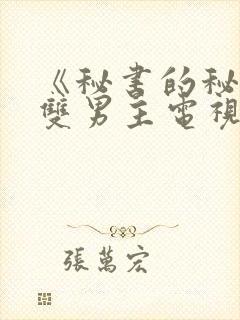 《秘書的秘
雙男主電視
張萬宏